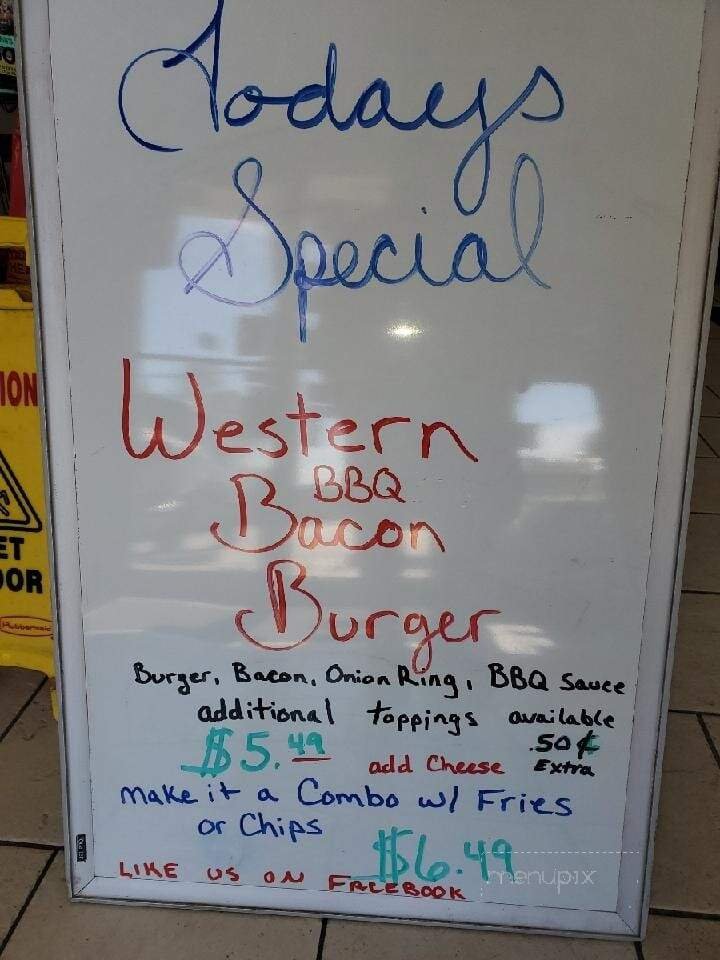 Todays
Special
Western
BBQ
Bacon
Burger
Burger, Bacon, Onion Ring, BBQ Sauce
additional toppings available
$5.49 add Cheese .50¢ Extra
make it a Combo w/ Fries
or Chips
$6.49
LIKE US ON FACEBOOK
menupix
ION
ET
OOR
Rubbermaid